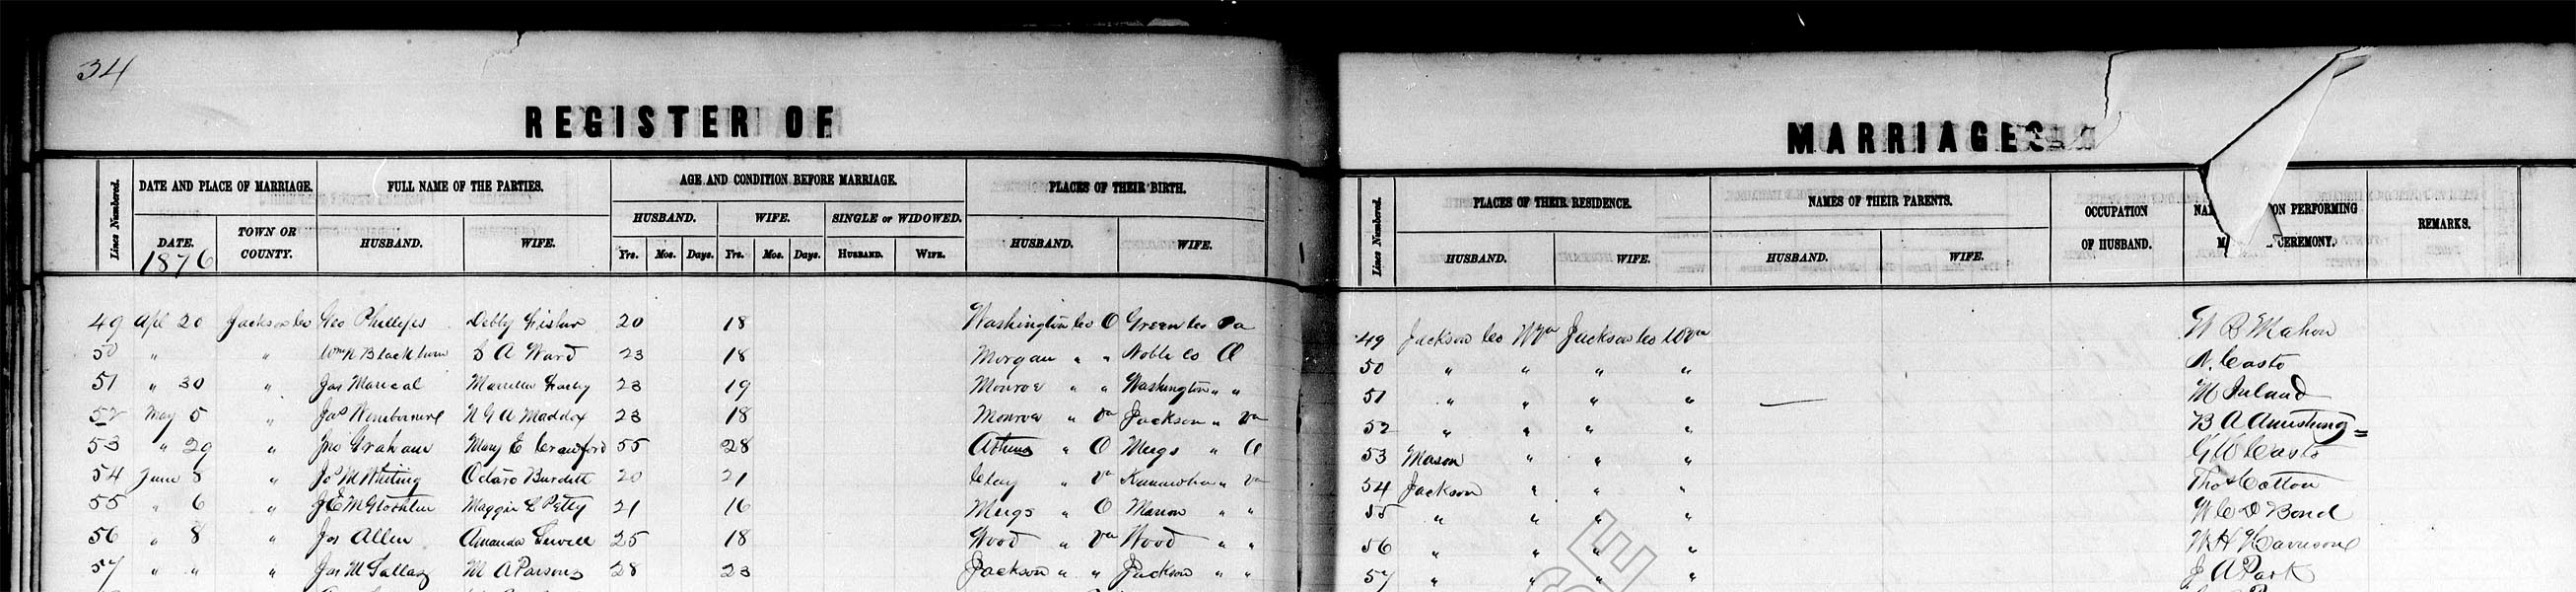 34
REGISTER OF MARRIAGES
Lines Numbered. DATE AND PLACE OF MARRIAGE. FULL NAME OF THE PARTIES. AGE AND CONDITION BEFORE MARRIAGE. PLACES OF THEIR BIRTH. Lines Numbered. PLACES OF THEIR RESIDENCE. NAMES OF THEIR PARENTS. OCCUPATION OF HUSBAND. ON PERFORMING CEREMONY. REMARKS.
DATE. TOWN OR COUNTY. HUSBAND. WIFE. HUSBAND. WIFE. SINGLE or WIDOWED. HUSBAND. WIFE. HUSBAND. WIFE. HUSBAND. WIFE.
1876 Yrs. Mos. Days. Yrs. Mos. Days. HUSBAND. WIFE.
49 Apl 20 Jackson Co Geo Phillips Debby 20 18 Washington Co O Green Co Pa 49 Jackson Co WVa Jackson Co WVa W B Mahon
50 " " Wm N Blackburn S A Ward 23 18 Morgan " " Noble Co O 50 " " " " N. Casto
51 " 30 " Jas 23 19 Monroe " " Washington " " 51 " " " " M Ireland
52 May 5 " Jas N G A Maddox 23 18 Monroe " Va Jackson " Va 52 " " " " B A Armstrong
53 " 29 " Jno Graham Mary E Crawford 55 28 Athens " O Meigs " O 53 Mason " " " G W Casto
54 June 8 " Jas M Whiting Burdett 20 21 Clay " Va Kanawha " Va 54 Jackson " " " Thos Cotton
55 " 6 " J E McGlothlin Maggie L Petty 21 16 Meigs " O Marion " " 55 " " " " W C D Bond
56 " 8 " Jos Allen Amanda 25 18 Wood " Va Wood " " 56 " " " " W H Harrison
57 " " " Jas M M A Parsons 28 23 Jackson " " Jackson " " 57 " " " " J A Park